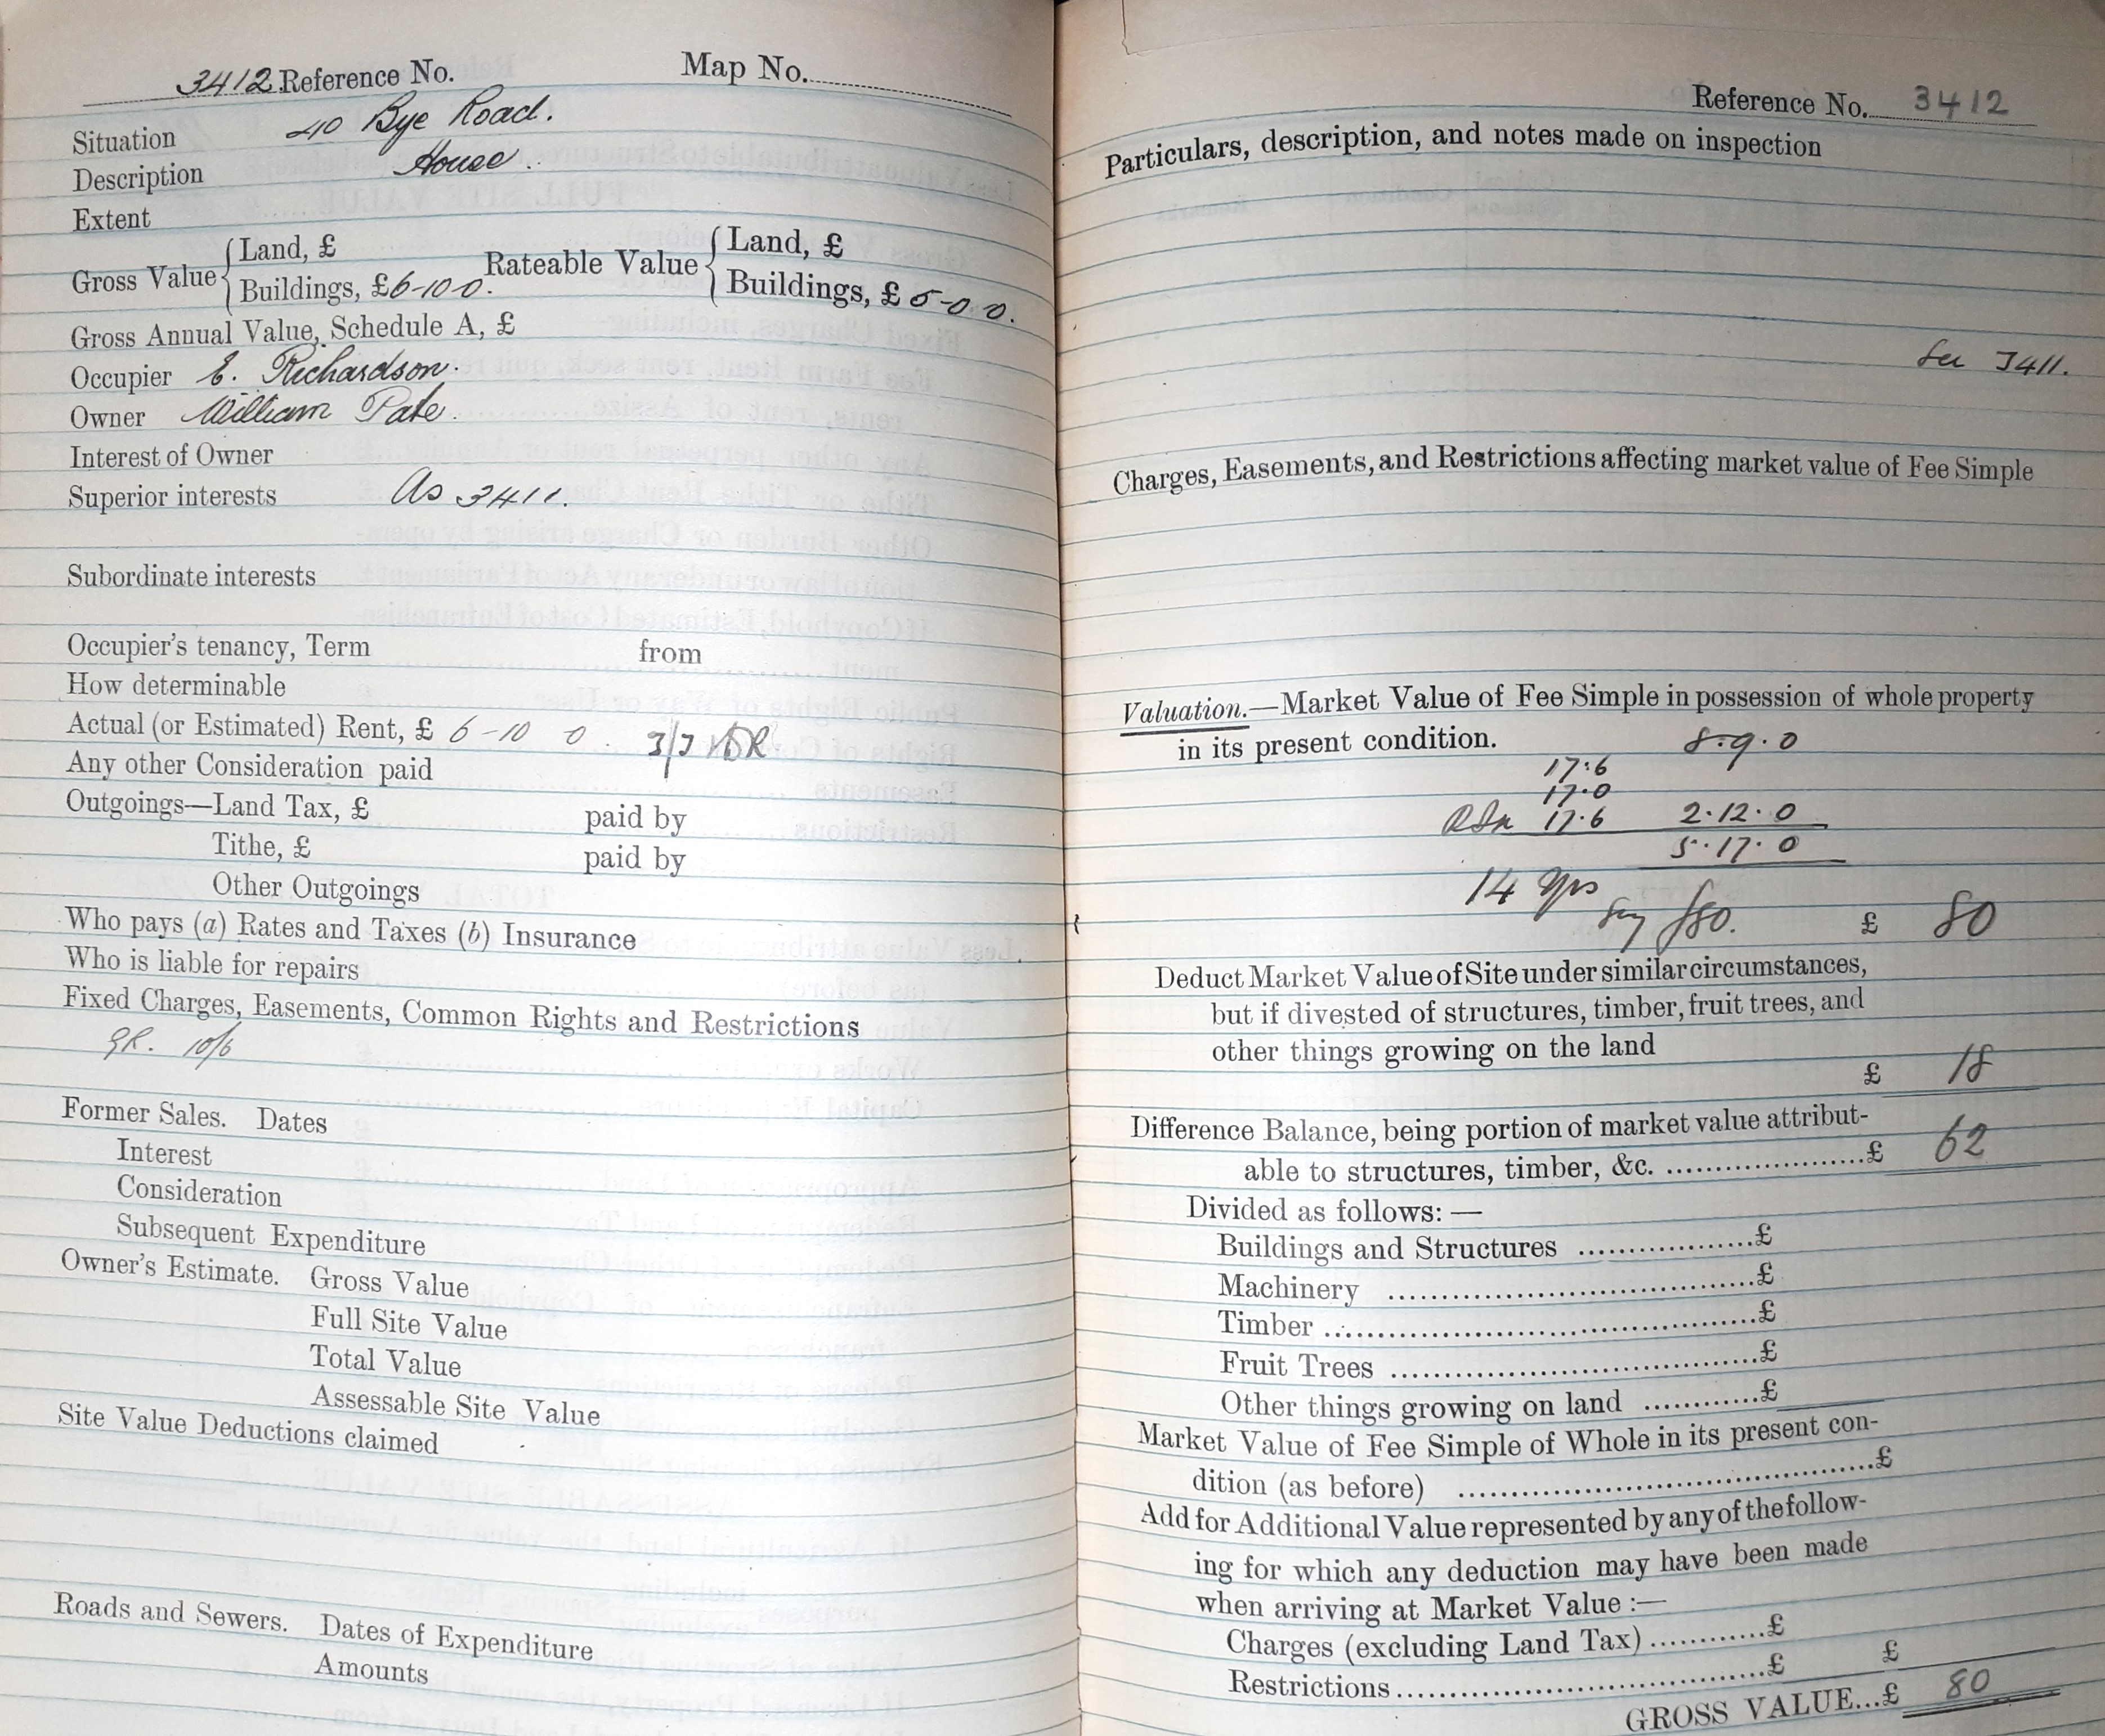 3412 Reference No. Map No.
Situation 40 Bye Road.
Description House.
Extent
Gross Value { Land, £ Rateable Value { Land, £
Buildings, £ 6-10-0. Buildings, £ 5-0-0.
Gross Annual Value, Schedule A, £
Occupier E. Richardson.
Owner William Pate.
Interest of Owner
Superior interests As 3411.
Subordinate interests
Occupier's tenancy, Term from
How determinable
Actual (or Estimated) Rent, £ 6-10 0 3/3
Any other Consideration paid
Outgoings—Land Tax, £ paid by
Tithe, £ paid by
Other Outgoings
Who pays (a) Rates and Taxes (b) Insurance
Who is liable for repairs
Fixed Charges, Easements, Common Rights and Restrictions
GR. 10/6
Former Sales. Dates
Interest
Consideration
Subsequent Expenditure
Owner's Estimate. Gross Value
Full Site Value
Total Value
Assessable Site Value
Site Value Deductions claimed
Roads and Sewers. Dates of Expenditure
Amounts
Reference No. 3412
Particulars, description, and notes made on inspection
See 3411.
Charges, Easements, and Restrictions affecting market value of Fee Simple
Valuation.—Market Value of Fee Simple in possession of whole property
in its present condition. 8.9.0
17:6
17.0
17.6 2.12.0
5.17.0
14 Yrs
Say £80. £ 80
Deduct Market Value of Site under similar circumstances,
but if divested of structures, timber, fruit trees, and
other things growing on the land
£ 18
Difference Balance, being portion of market value attribut-
able to structures, timber, &c. ....................£ 62
Divided as follows:—
Buildings and Structures ..................£
Machinery ..................£
Timber ..................£
Fruit Trees ..................£
Other things growing on land ............£
Market Value of Fee Simple of Whole in its present con-
dition (as before) ..................£
Add for Additional Value represented by any of the follow-
ing for which any deduction may have been made
when arriving at Market Value:—
Charges (excluding Land Tax)............£
Restrictions..................£ £
GROSS VALUE...£ 80